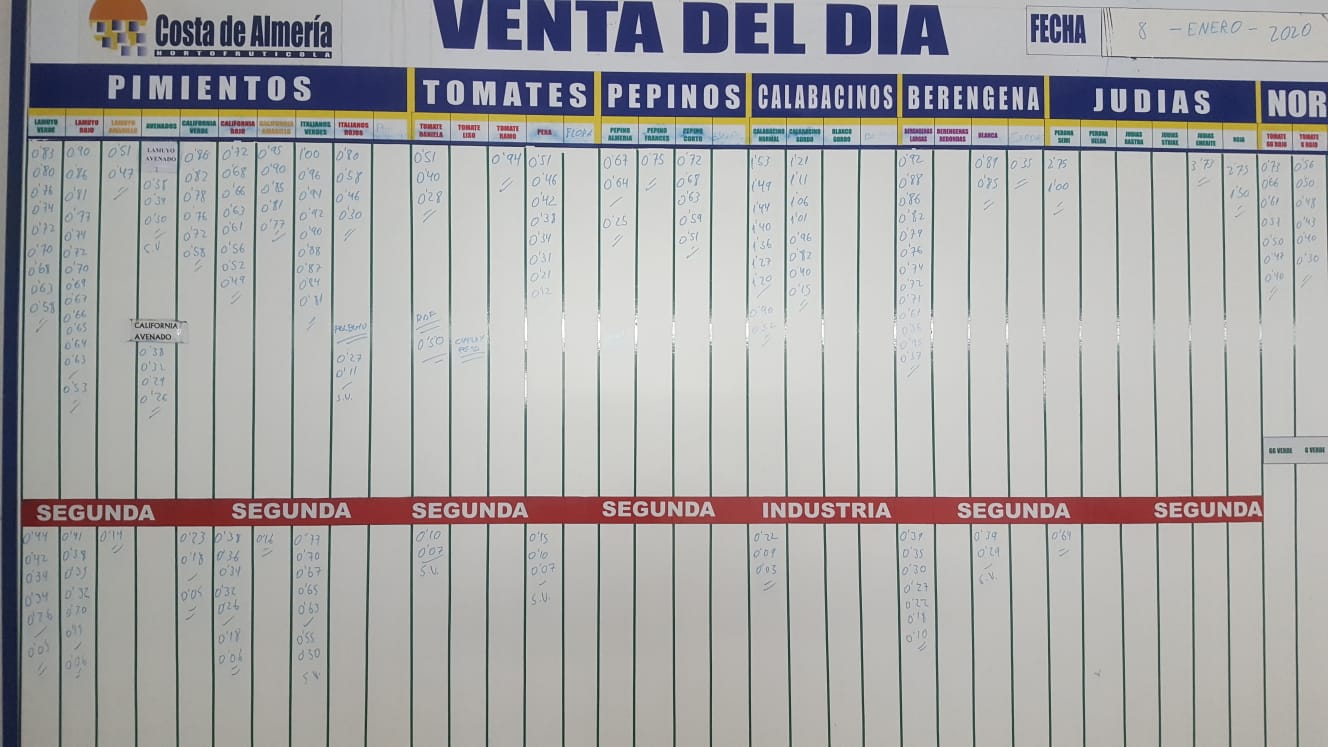 Costa de Almería
HORTOFRUTICOLA
VENTA DEL DIA
FECHA 8 - ENERO - 2020
PIMIENTOS TOMATES PEPINOS CALABACINOS BERENGENA JUDIAS NOR
LAMUYO VERDE
LAMUYO ROJO
LAMUYO AMARILLO
AVENADOS
CALIFORNIA VERDE
CALIFORNIA ROJO
CALIFORNIA AMARILLO
ITALIANOS VERDES
ITALIANOS ROJOS
TOMATE DANIELA
TOMATE LISO
TOMATE RAMO
PERA
FLORA
PEPINO ALMERIA
PEPINO FRANCES
PEPINO CORTO
CALABACINO NORMAL
CALABACINO GORDO
BLANCO GORDO
BERENGENAS LARGAS
BERENGENAS REDONDAS
BLANCA
PERONA SEMI
PERONA VELDA
JUDIAS RASTRA
JUDIAS STRIKE
JUDIAS EMERITE
ROJA
TOMATE GG ROJO
TOMATE G ROJO
0'83
0'80
0'76
0'74
0'72
0'70
0'68
0'63
0'58
0'90
0'86
0'81
0'77
0'74
0'72
0'70
0'69
0'67
0'66
0'65
0'64
0'63
0'53
0'51
0'47
LAMUYO
AVENADO
0'58
0'39
0'30
S.V
CALIFORNIA
AVENADO
0'38
0'32
0'29
0'26
0'86
0'82
0'78
0'76
0'72
0'58
0'72
0'68
0'66
0'63
0'61
0'56
0'52
0'49
0'95
0'90
0'85
0'81
0'77
1'00
0'96
0'94
0'92
0'90
0'88
0'87
0'84
0'81
0'80
0'58
0'46
0'30
0'27
0'11
S.V.
0'51
0'40
0'28
RAF
0'50
0'94
0'51
0'46
0'42
0'38
0'34
0'31
0'21
0'12
0'67
0'64
0'25
0'75
0'72
0'68
0'63
0'59
0'51
1'53
1'49
1'44
1'40
1'36
1'27
1'20
0'90
1'21
1'11
1'06
1'01
0'96
0'82
0'40
0'15
0'92
0'88
0'86
0'82
0'79
0'76
0'74
0'72
0'71
0'61
0'37
0'89
0'85
0'35
2'75
1'00
3'73
2'75
1'50
0'73
0'66
0'61
0'50
0'47
0'40
0'56
0'50
0'48
0'43
0'40
0'30
GG VERDE G VERDE
SEGUNDA SEGUNDA SEGUNDA SEGUNDA INDUSTRIA SEGUNDA SEGUNDA
0'44
0'42
0'39
0'34
0'26
0'05
0'41
0'38
0'35
0'32
0'30
0'06
0'14
0'23
0'18
0'05
0'38
0'36
0'34
0'32
0'26
0'18
0'06
0'77
0'70
0'67
0'65
0'63
0'55
0'30
S.V.
0'10
0'07
S.V.
0'15
0'10
0'07
S.V.
0'22
0'09
0'03
0'39
0'35
0'30
0'27
0'22
0'18
0'10
0'39
0'29
S.V.
0'64